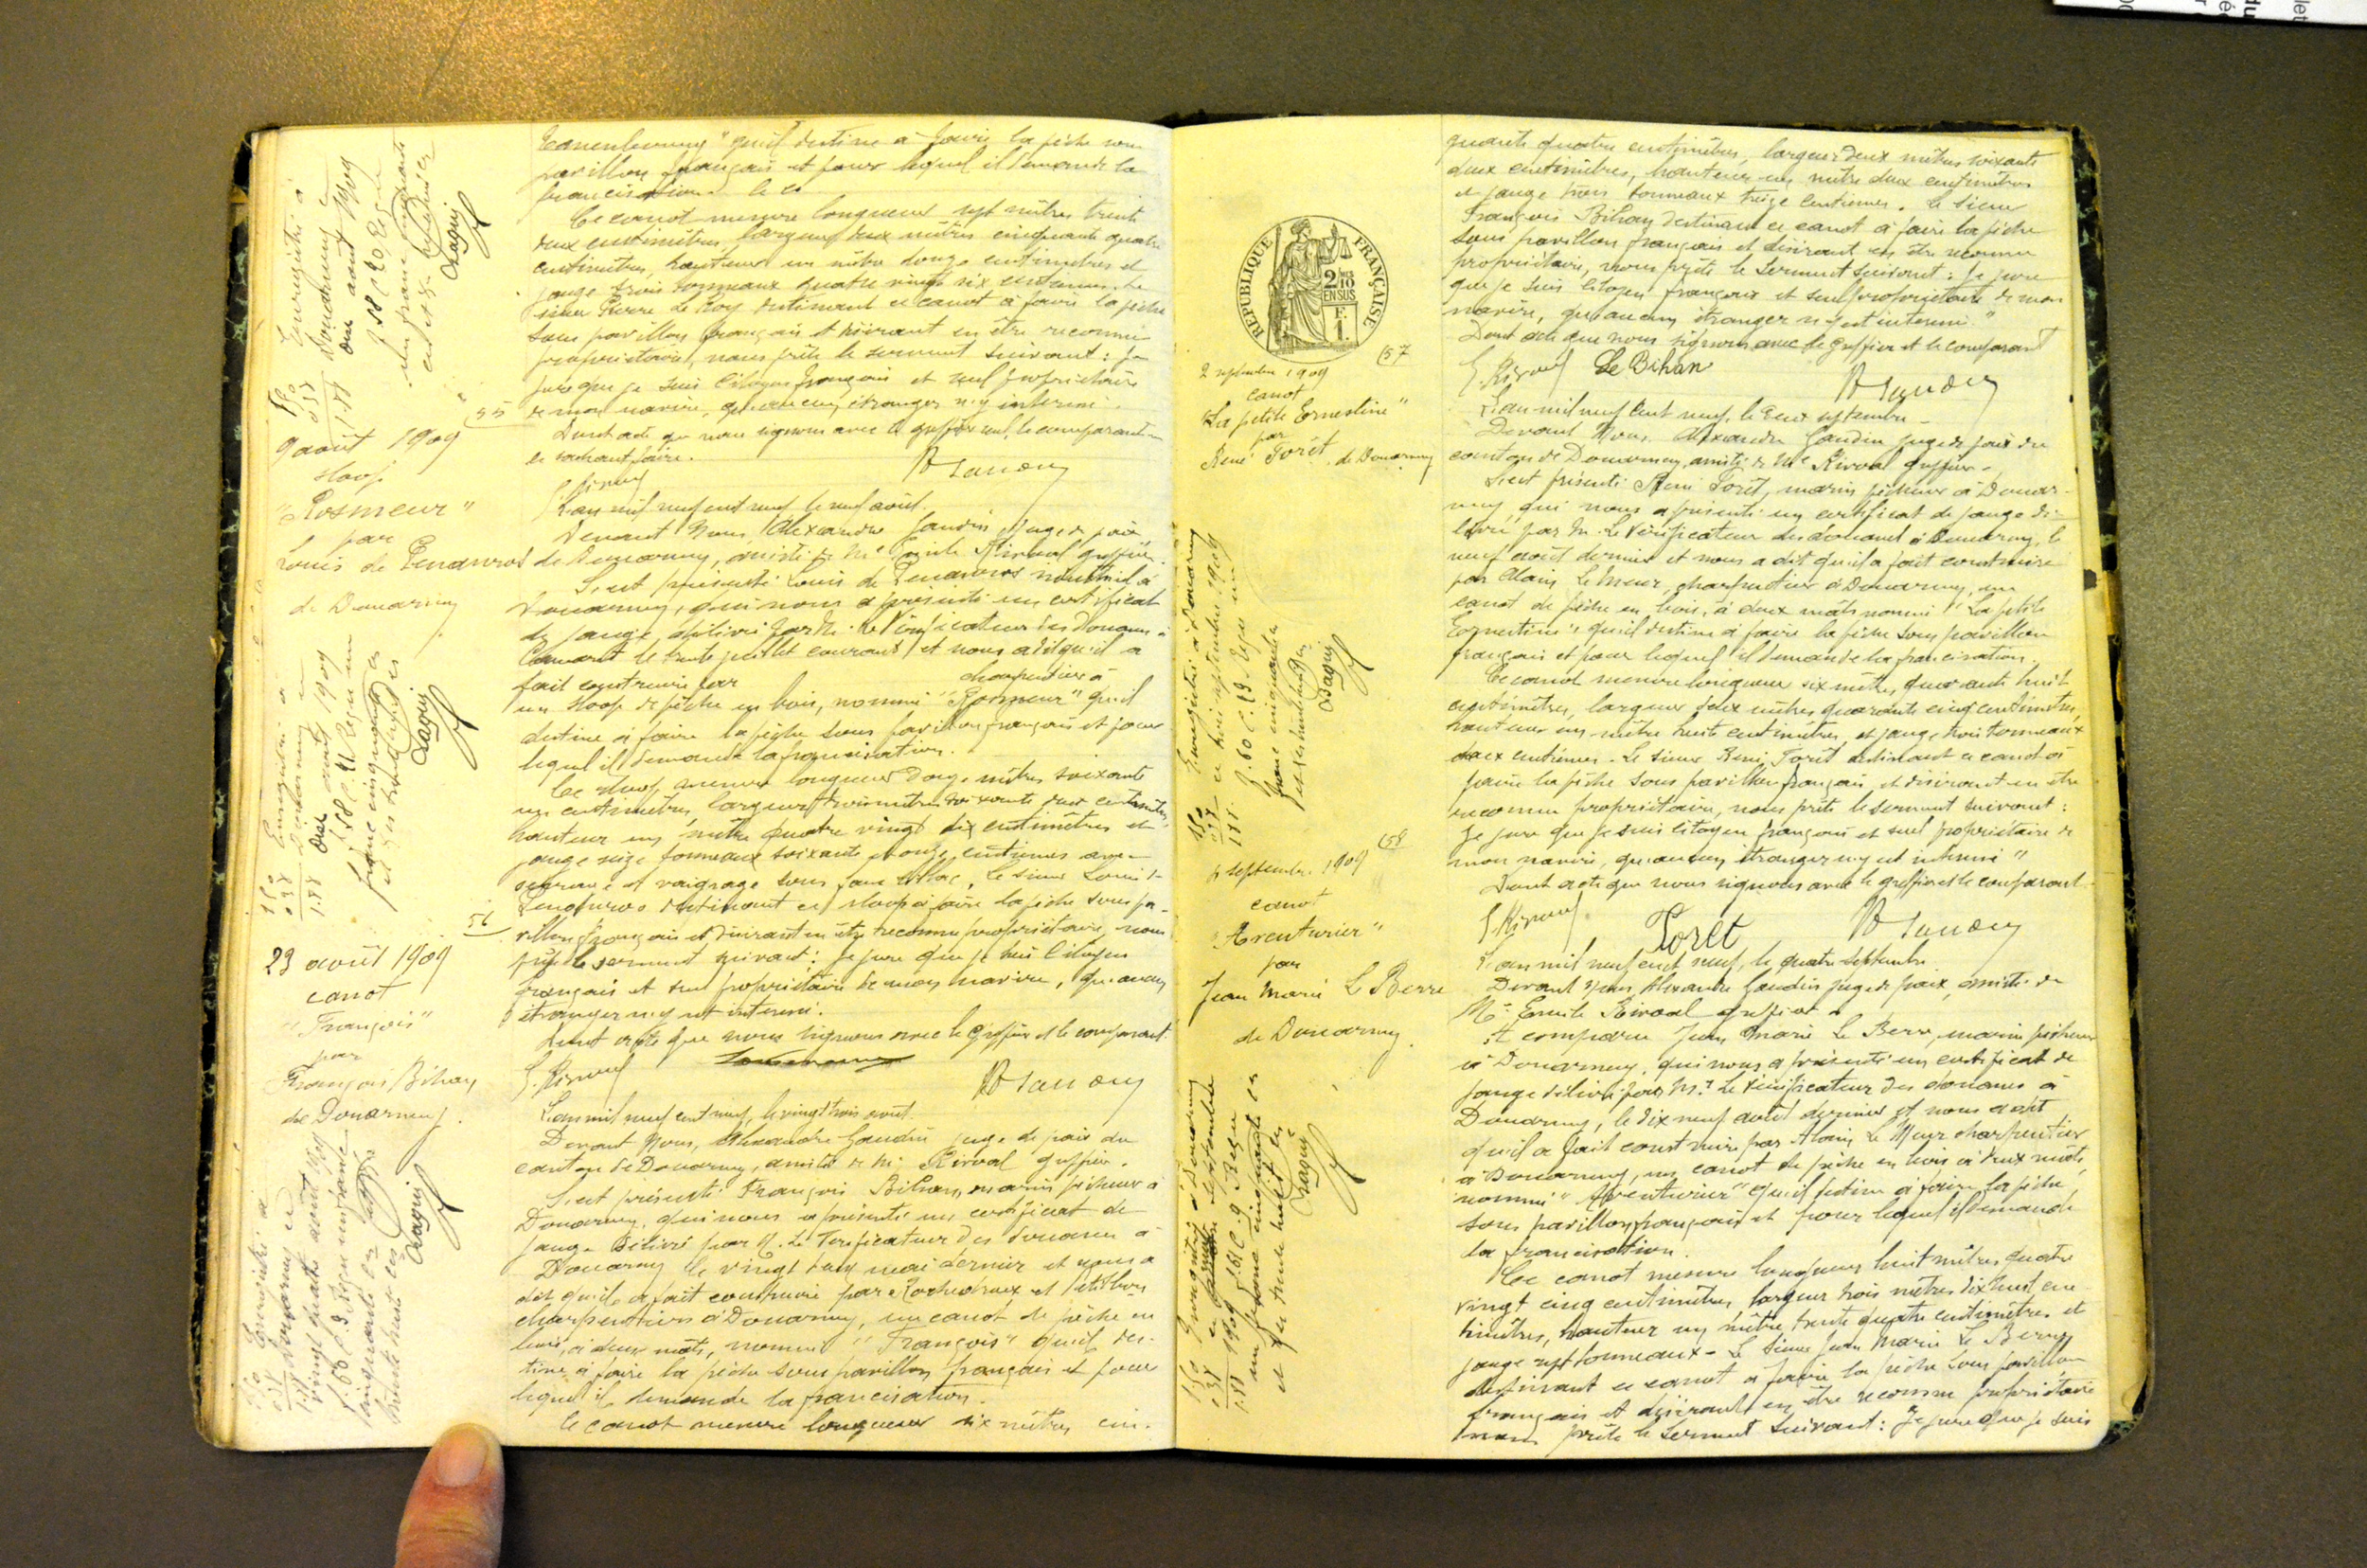 qu'il destine à faire la pêche sous
pavillon français et pour lequel il demande la
francisation. le ct
Ce canot mesure longueur sept mètres trente
deux centimètres, largeur deux mètres cinquante quatre
centimètres, hauteur un mètre douze centimètres et
jauge trois tonneaux quatre vingt six centièmes. Le
sieur Pierre Le Roy destinant ce canot à faire la pêche
sous pavillon français et désirant en être reconnu
propriétaire, nous prête le serment suivant : Je
jure que je suis Citoyen français et seul propriétaire
de mon navire, qu'aucun étranger n'y intéressé.
Dont acte que nous signons avec le greffier seul, le comparant ne
le sachant faire.
Enregistré à
Douarnenez le
onze août 1909
f. 58 C. 20 Reçu
un franc cinquante
Dagny
1.50
0.38
1.88
55
9 août 1909
sloop
"Rosmeur"
par
Louis de Penanros
de Douarnenez
L'an mil neuf cent neuf le neuf août.
Devant Nous, Alexandre Gaudin Juge de paix
de Douarnenez, assisté de Me Emile Kirval greffier.
S'est présenté Louis de Penanros à
Douarnenez, qui nous a présenté un certificat
de jauge, délivré par M. le Vérificateur des Douanes à
Camaret le trente juillet courant et nous a dit qu'il a
fait construire par charpentier à
un sloop de pêche en bois, nommé "Rosmeur" qu'il
destine à faire la pêche sous pavillon français et pour
lequel il demande la francisation.
Ce sloop mesure longueur douze mètres soixante
un centimètres, largeur trois mètres soixante deux centimètres,
hauteur un mètre quatre vingt dix centimètres et
jauge seize tonneaux soixante onze centièmes avec
serrage et vaigrage sous . Le sieur Louis de
Penanros destinant ce sloop à faire la pêche sous pa-
villon français et désirant en être reconnu propriétaire, nous
prête le serment suivant : Je jure que je suis Citoyen
français et seul propriétaire de mon navire, qu'aucun
étranger n'y est intéressé.
Dont acte que nous signons avec le Greffier et le comparant.
Enregistré à
Douarnenez le
onze août 1909
f. 58 C. 21 Reçu un
franc cinquante
Dagny
1.50
0.38
1.88
56
23 août 1909
canot
"François"
par
François Bihan
de Douarnenez.
L'an mil neuf cent neuf, le vingt trois août.
Devant Nous, Alexandre Gaudin juge de paix du
canton de Douarnenez, assisté de Me Kirval greffier.
S'est présenté François Bihan, marin pêcheur à
Douarnenez, qui nous a présenté un certificat de
jauge délivré par M. Le Vérificateur des douanes à
Douarnenez le vingt mai dernier et nous a
dit qu'il a fait construire par et
charpentiers à Douarnenez, un canot de pêche en
bois, à deux mâts, nommé "François" qu'il des-
tine à faire la pêche sous pavillon français et pour
lequel il demande la francisation.
Ce canot mesure longueur six mètres cin-
Enregistré à
Douarnenez le
vingt quatre août 1909
f. 60 C. 3 Reçu un franc
cinquante
Dagny
quante quatre centimètres, largeur deux mètres soixante
deux centimètres, hauteur un mètre deux centimètres
et jauge trois tonneaux treize centièmes. Le sieur
François Bihan destinant ce canot à faire la pêche
sous pavillon français et désirant en être reconnu
propriétaire, nous prête le serment suivant : Je jure
que je suis Citoyen français et seul propriétaire de mon
navire, qu'aucun étranger n'y est intéressé."
Dont acte que nous signons avec le greffier et le comparant
Le Bihan
RÉPUBLIQUE FRANÇAISE
2/10
EN SUS
F.
1.
57
2 septembre 1909
canot
"La petite Ernestine"
par
René Torét
de Douarnenez
L'an mil neuf Cent neuf, le deux septembre
Devant Nous, Alexandre Gaudin juge de paix du
canton de Douarnenez, assisté de Me Kirval greffier.
S'est présenté René Torét, marin pêcheur à Douar-
nenez qui nous a présenté un certificat de jauge dé-
livré par M. Le Vérificateur des douanes à Douarnenez, le
neuf août dernier et nous a dit qu'il a fait construire
par Alain Le Meur, charpentier à Douarnenez, un
canot de pêche en bois, à deux mâts nommé "La petite
Ernestine", qu'il destine à faire la pêche sous pavillon
français et pour lequel il demande la francisation.
Ce canot mesure longueur six mètres quarante huit
centimètres, largeur deux mètres quarante cinq centimètres,
hauteur un mètre huit centimètres et jauge trois tonneaux
deux centièmes. Le sieur René Torét destinant ce canot à
faire la pêche sous pavillon français et désirant en être
reconnu propriétaire, nous prête le serment suivant :
Je jure que je suis citoyen français et seul propriétaire de
mon navire, qu'aucun étranger n'y est intéressé"
Dont acte que nous signons avec le greffier et le comparant.
Torét
Enregistré à Douarnenez
le huit septembre 1909
f. 60 C. 19 Reçu un
franc cinquante
Dagny
1.50
0.38
1.88
58
4 septembre 1909
canot
"Aventurier"
par
Jean Marie Le Berre
de Douarnenez.
L'an mil neuf cent neuf, le quatre septembre.
Devant Nous, Alexandre Gaudin juge de paix, assisté de
Me Emile Kirval greffier
A comparu Jean Marie Le Berre, marin pêcheur
à Douarnenez, qui nous a présenté un certificat de
jauge délivré par Mr Le Vérificateur des douanes à
Douarnenez, le dix neuf août dernier et nous a dit
qu'il a fait construire par Alain Le Meur charpentier
à Douarnenez, un canot de pêche en bois à deux mâts,
nommé "Aventurier" qu'il destine à faire la pêche
sous pavillon français et pour lequel il demande
la francisation.
Ce canot mesure longueur huit mètres quatre
vingt cinq centimètres, largeur trois mètres dix huit cen-
timètres, hauteur un mètre trente quatre centimètres et
jauge sept tonneaux. Le sieur Jean Marie Le Berre
destinant ce canot à faire la pêche sous pavillon
français et désirant en être reconnu propriétaire
nous prête le serment suivant : Je jure que je suis
Enregistré à Douarnenez
le septembre
1909 f. 61 C. 9 Reçu
un franc cinquante
et trente huit
Dagny
1.50
0.38
1.88